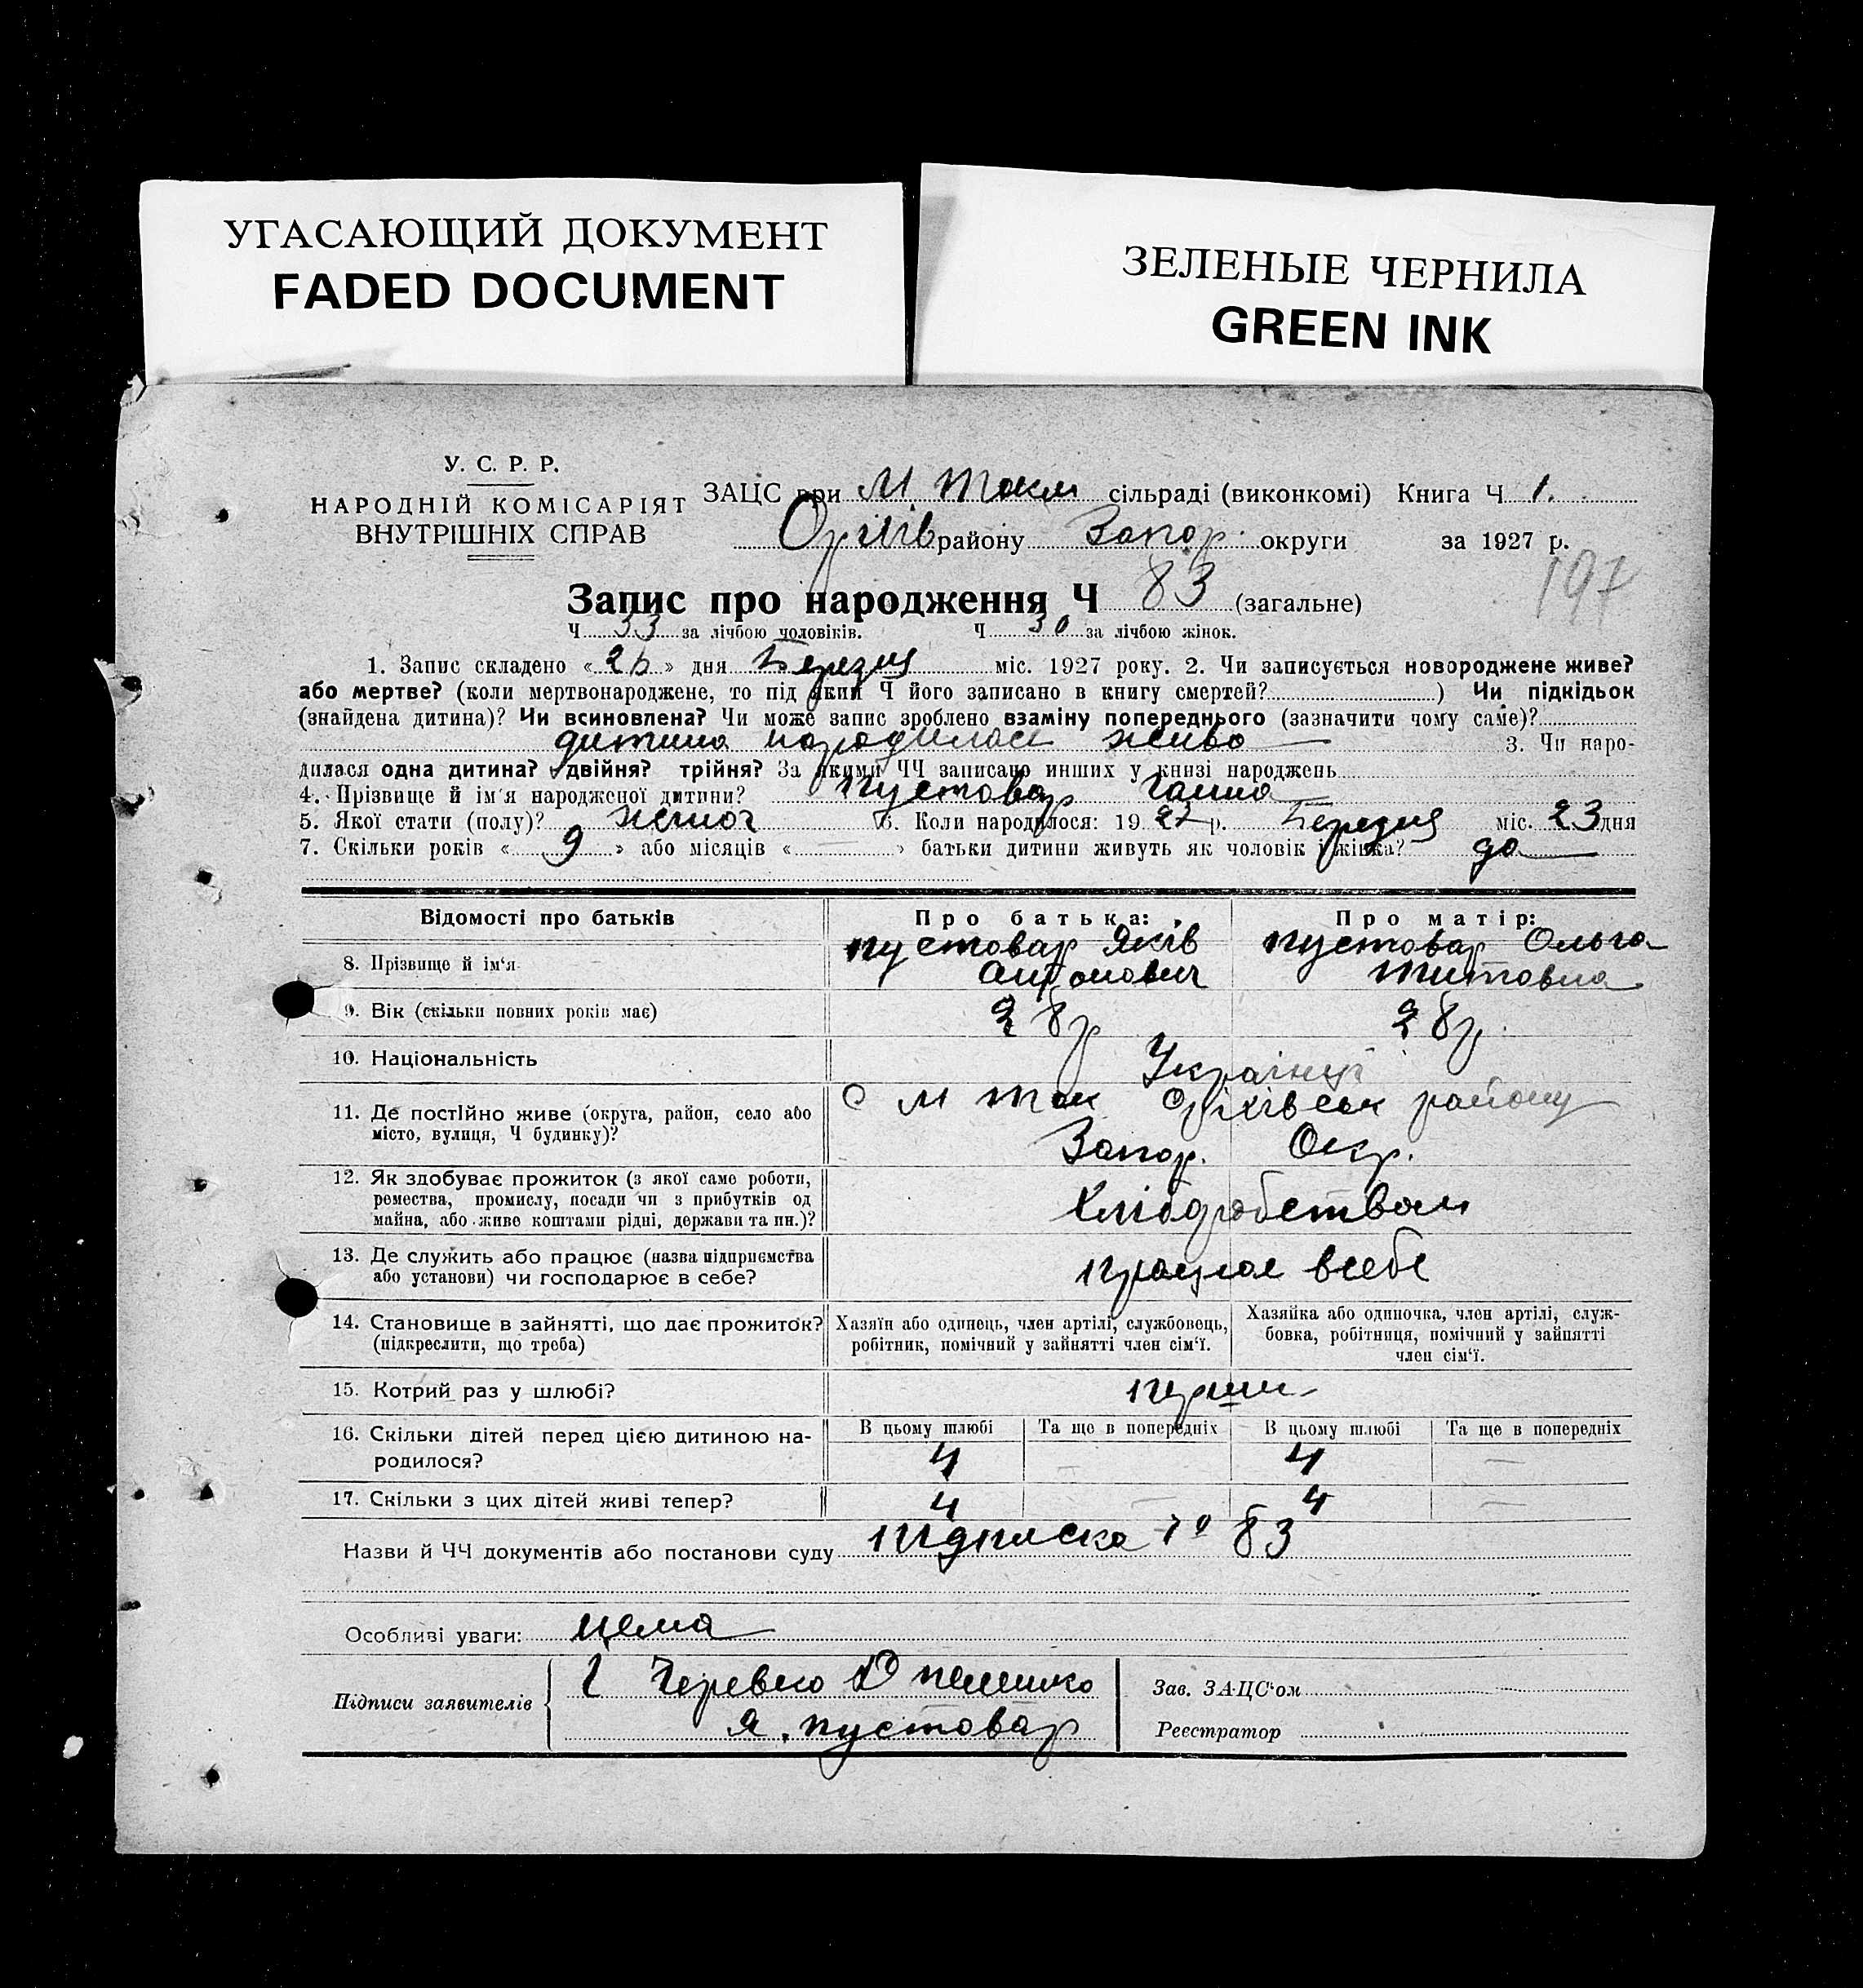 УГАСАЮЩИЙ ДОКУМЕНТ
FADED DOCUMENT
ЗЕЛЕНЫЕ ЧЕРНИЛА
GREEN INK
У. С. Р. Р.
НАРОДНІЙ КОМІСАРІЯТ
ВНУТРІШНІХ СПРАВ
ЗАЦС при М Токм сільраді (виконкомі) Книга Ч 1.
Оріхів району Запор. округи за 1927 р.
197
Запис про народження Ч 83 (загальне)
Ч 33 за лічбою чоловіків. Ч 30 за лічбою жінок.
1. Запис складено « » дня Березня міс. 1927 року. 2. Чи записується новороджене живе?
або мертве? (коли мертвонароджене, то під яким Ч його записано в книгу смертей? ) Чи підкідьок
(знайдена дитина)? Чи всиновлена? Чи може запис зроблено взаміну попереднього (зазначити чому саме)?
дитина народилась живо 3. Чи наро-
дилася одна дитина? двійня? трійня? За якими ЧЧ записано инших у книзі народжень
4. Прізвище й ім'я народженої дитини? Пустовар Ганна
5. Якої статі (полу)? жіноч 6. Коли народилося: 1927 р. Березня міс. 23 дня
7. Скільки років « 9 » або місяців « — » батьки дитини живуть як чоловік і жінка? да
Відомості про батьків Про батька: Про матір:
8. Прізвище й ім'я Пустовар Яків Пустовар Ольга
Антонович Титовна
9. Вік (скільки повних років має) 28 р 28 р.
10. Національність Українці
11. Де постійно живе (округа, район, село або С М Ток Оріхівськ району
місто, вулиця, Ч будинку)? Запор. Окр.
12. Як здобуває прожиток (з якої саме роботи,
ремества, промислу, посади чи з прибутків од Хлібробством
майна, або живе коштами рідні, держави та ин.)?
13. Де служить або працює (назва підприємства працює всебе
або установи) чи господарює в себе?
14. Становище в зайнятті, що дає прожиток? Хазяїн або одинець, член артілі, службовець, Хазяйка або одиночка, член артілі, служ-
(підкреслити, що треба) робітник, помічний у зайнятті член сім'ї. бовка, робітниця, помічний у зайнятті
член сім'ї.
15. Котрий раз у шлюбі? перши
16. Скільки дітей перед цією дитиною на- В цьому шлюбі Та ще в попередніх В цьому шлюбі Та ще в попередніх
родилося? 4 — 4 —
17. Скільки з цих дітей живі тепер? 4 — 4 —
Назви й ЧЧ документів або постанови суду Підписка № 83
Особливі уваги: нема
Підписи заявителів Черевко
Я. Пустовар
Зав. ЗАЦС'ом
Реєстратор